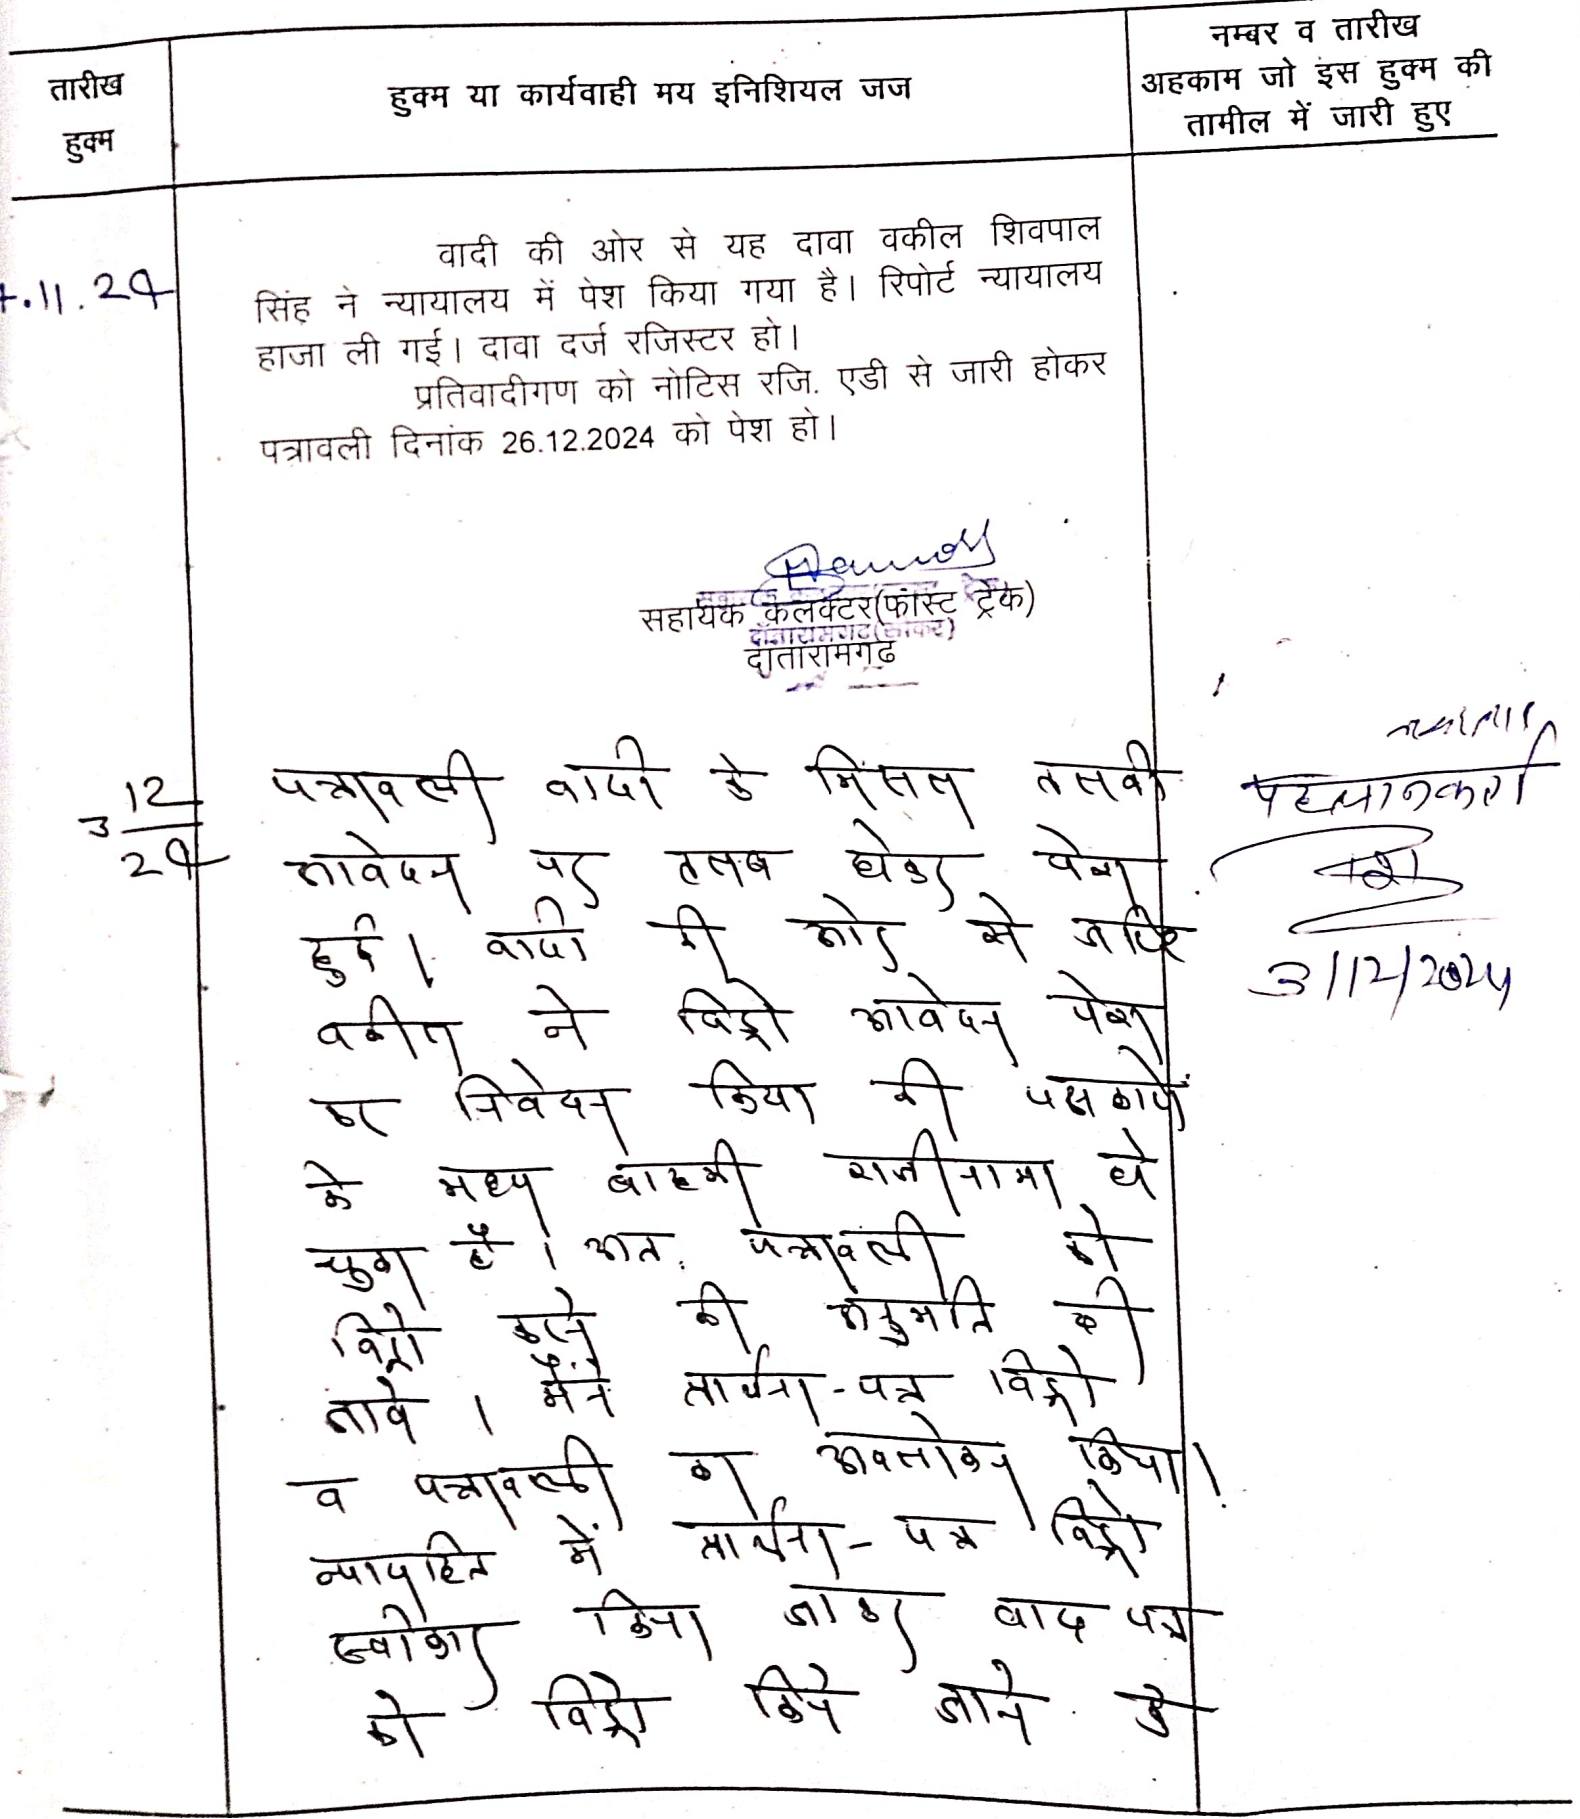 तारीख
हुक्म
हुक्म या कार्यवाही मय इनिशियल जज
नम्बर व तारीख
अहकाम जो इस हुक्म की
तामील में जारी हुए
.11.24
वादी की ओर से यह दावा वकील शिवपाल
सिंह ने न्यायालय में पेश किया गया है। रिपोर्ट न्यायालय
हाजा ली गई। दावा दर्ज रजिस्टर हो।
प्रतिवादीगण को नोटिस रजि. एडी से जारी होकर
पत्रावली दिनांक 26.12.2024 को पेश हो।
सहायक कलक्टर(फास्ट ट्रेक)
दांतारामगढ
3 12
24
पत्रावली वादी के मिसल तलबी
आवेदन पर तलब होकर पेश
हुई। वादी की ओर से जरिये
वकील ने विड्रो आवेदन पेश
कर निवेदन किया की पक्षकारों
के मध्य बाहमी राजीनामा हो
चुका है। अत: पत्रावली को
विड्रो करने की अनुमति दी
जावे। मैंने प्रार्थना-पत्र विड्रो
व पत्रावली का अवलोकन किया।
न्यायहित में प्रार्थना-पत्र विड्रो
स्वीकार किया जाकर वाद पत्र
को विड्रो किये जाने के
पहचानकर्ता
3/12/2024